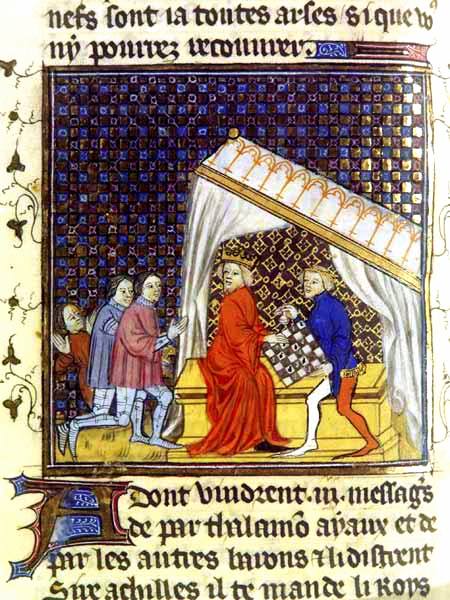 nefs sont ia toutes arses si que vo'
ny pourrez recouurer.
Adont vindrent .iii. messag's
de par thalamõ ayaux et de
par les autres barons & li distrent
Sire achilles il te mande li Roys